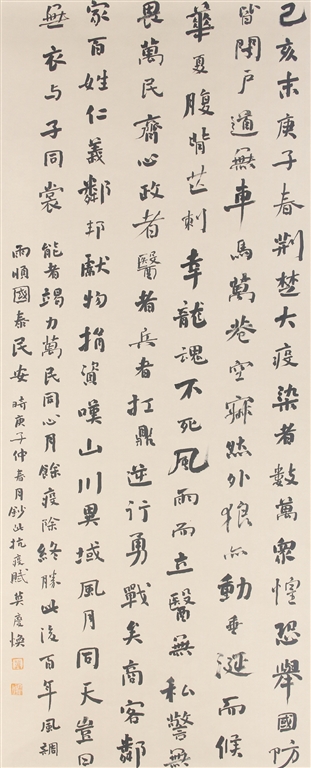 己亥末庚子春荊楚大疫染者數萬眾惶恐舉國防
皆閉戶道無車馬萬巷空寂然外狼亦動垂涎而候
華夏腹背芒刺幸龍魂不死風雨而立醫無私警無
畏萬民齊心政者醫者兵者扛鼎逆行勇戰矣商客鄰
家百姓仁義鄰邦獻物捐資嘆山川異域風月同天豈曰
無衣与子同裳
能者竭力萬民同心月餘疫除終勝此後百年風調
雨順國泰民安 時庚子仲春月鈔此抗疫賦 莫慶